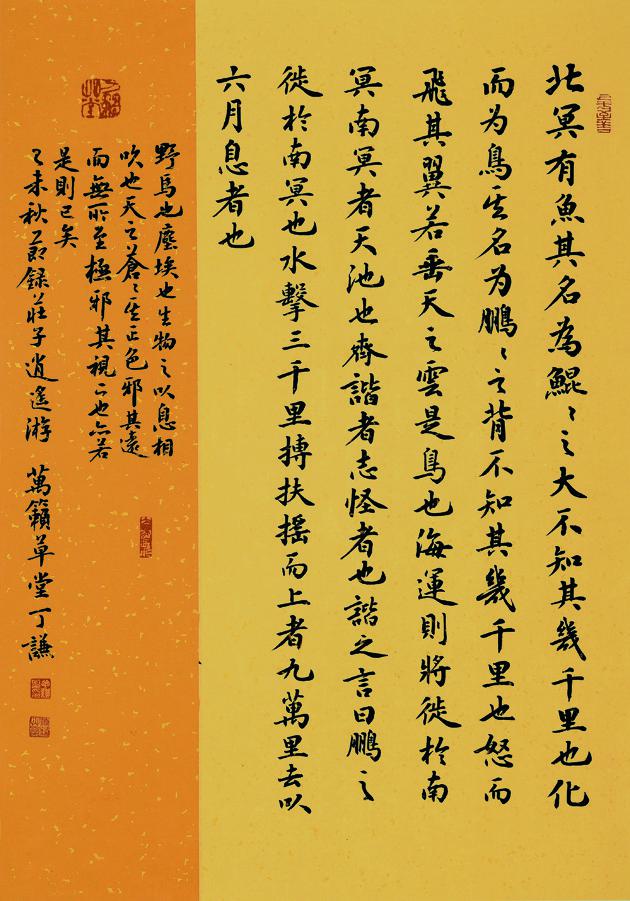 北冥有魚其名為鯤〻之大不知其幾千里也化
而为鳥其名为鵬〻之背不知其幾千里也怒而
飛其翼若垂天之雲是鳥也海運則將徙於南
冥南冥者天池也齊諧者志怪者也諧之言曰鵬之
徙於南冥也水擊三千里摶扶摇而上者九萬里去以
六月息者也
野馬也塵埃也生物之以息相
吹也天之蒼〻其正色邪其遠
而無所至極邪其視下也亦若
是則已矣
乙未秋節録莊子逍遙游 萬籟草堂丁謙